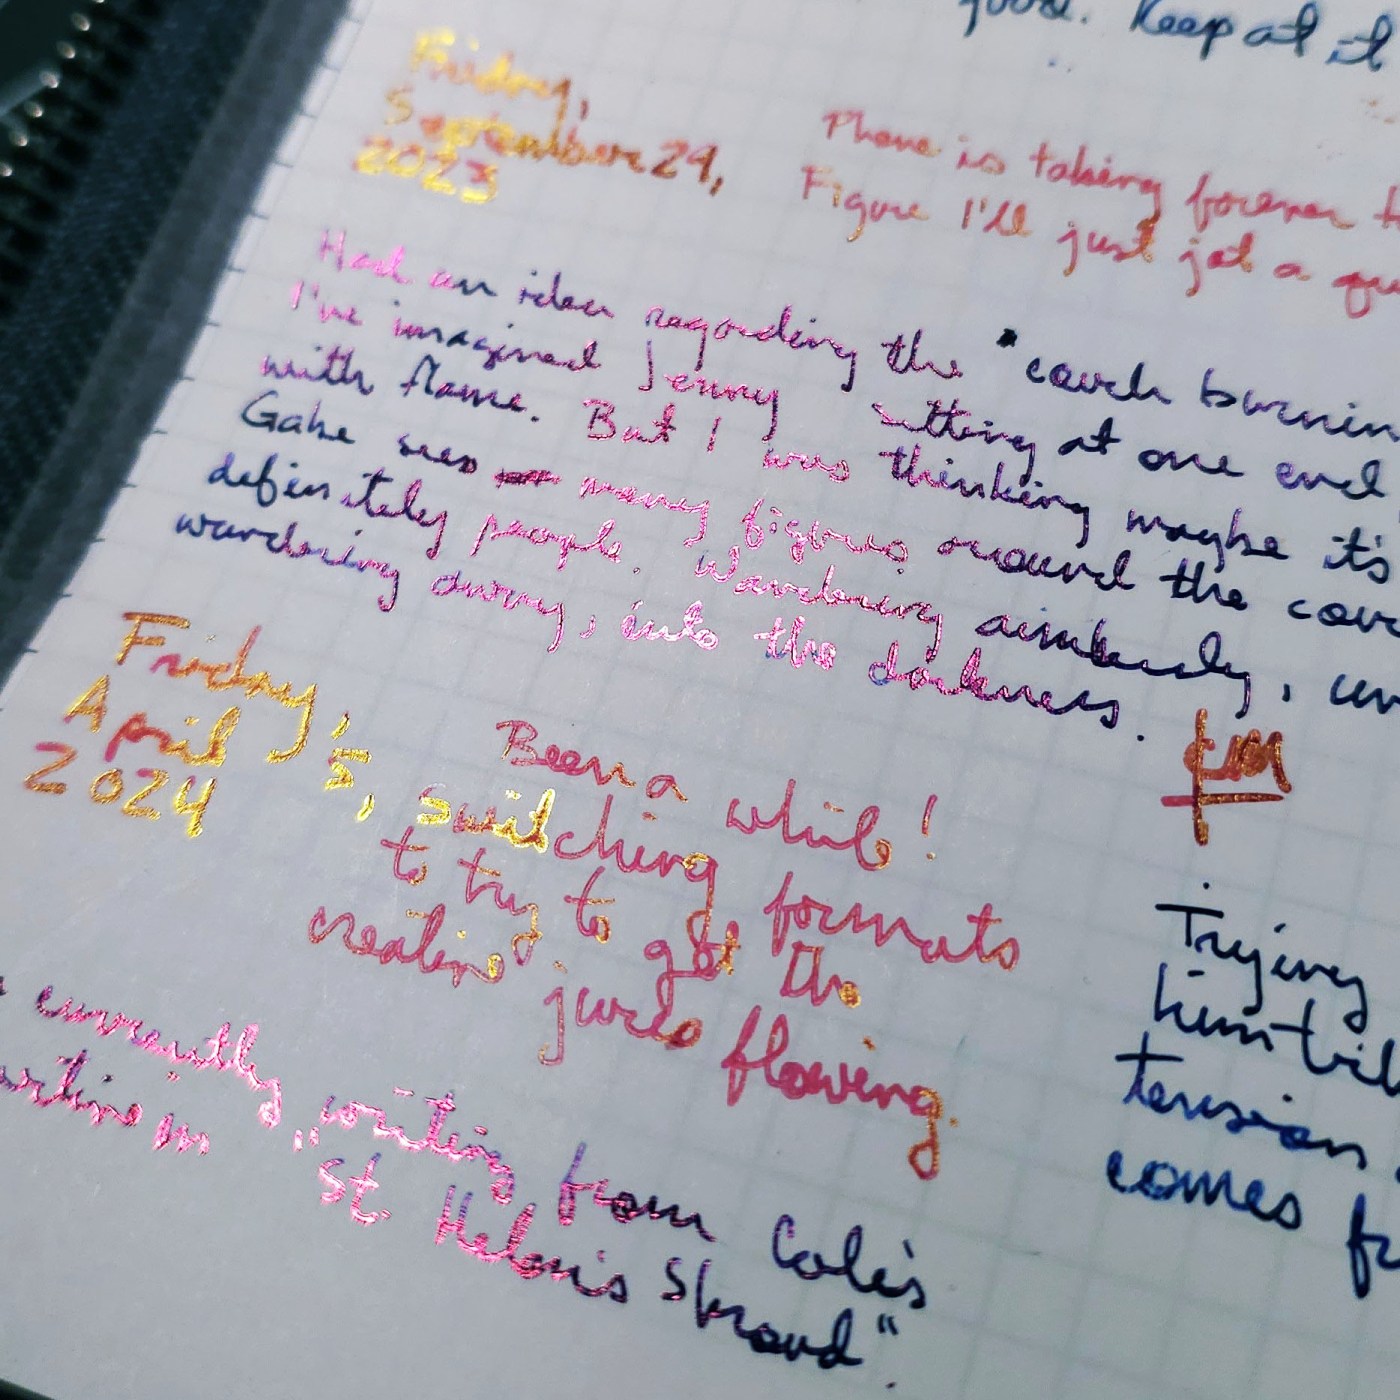 good. Keep at it
Friday,
September 29,
2023
Phone is taking forever t
Figure I'll just jot a qu
Had an idea regarding the "couch burnin
I've imagined Jenny sitting at one end
with flame. But I was thinking maybe it's
Gabe sees many figures around the cou
definitely people. Wandering aimlessly, un
wandering away, into the darkness.
Friday,
April 5,
2024
Been a while!
switching formats
to try to get the
creative juices flowing.
Trying
him
tension
comes fr
currently writing from Cole's
writing in "St. Helen's Shroud".